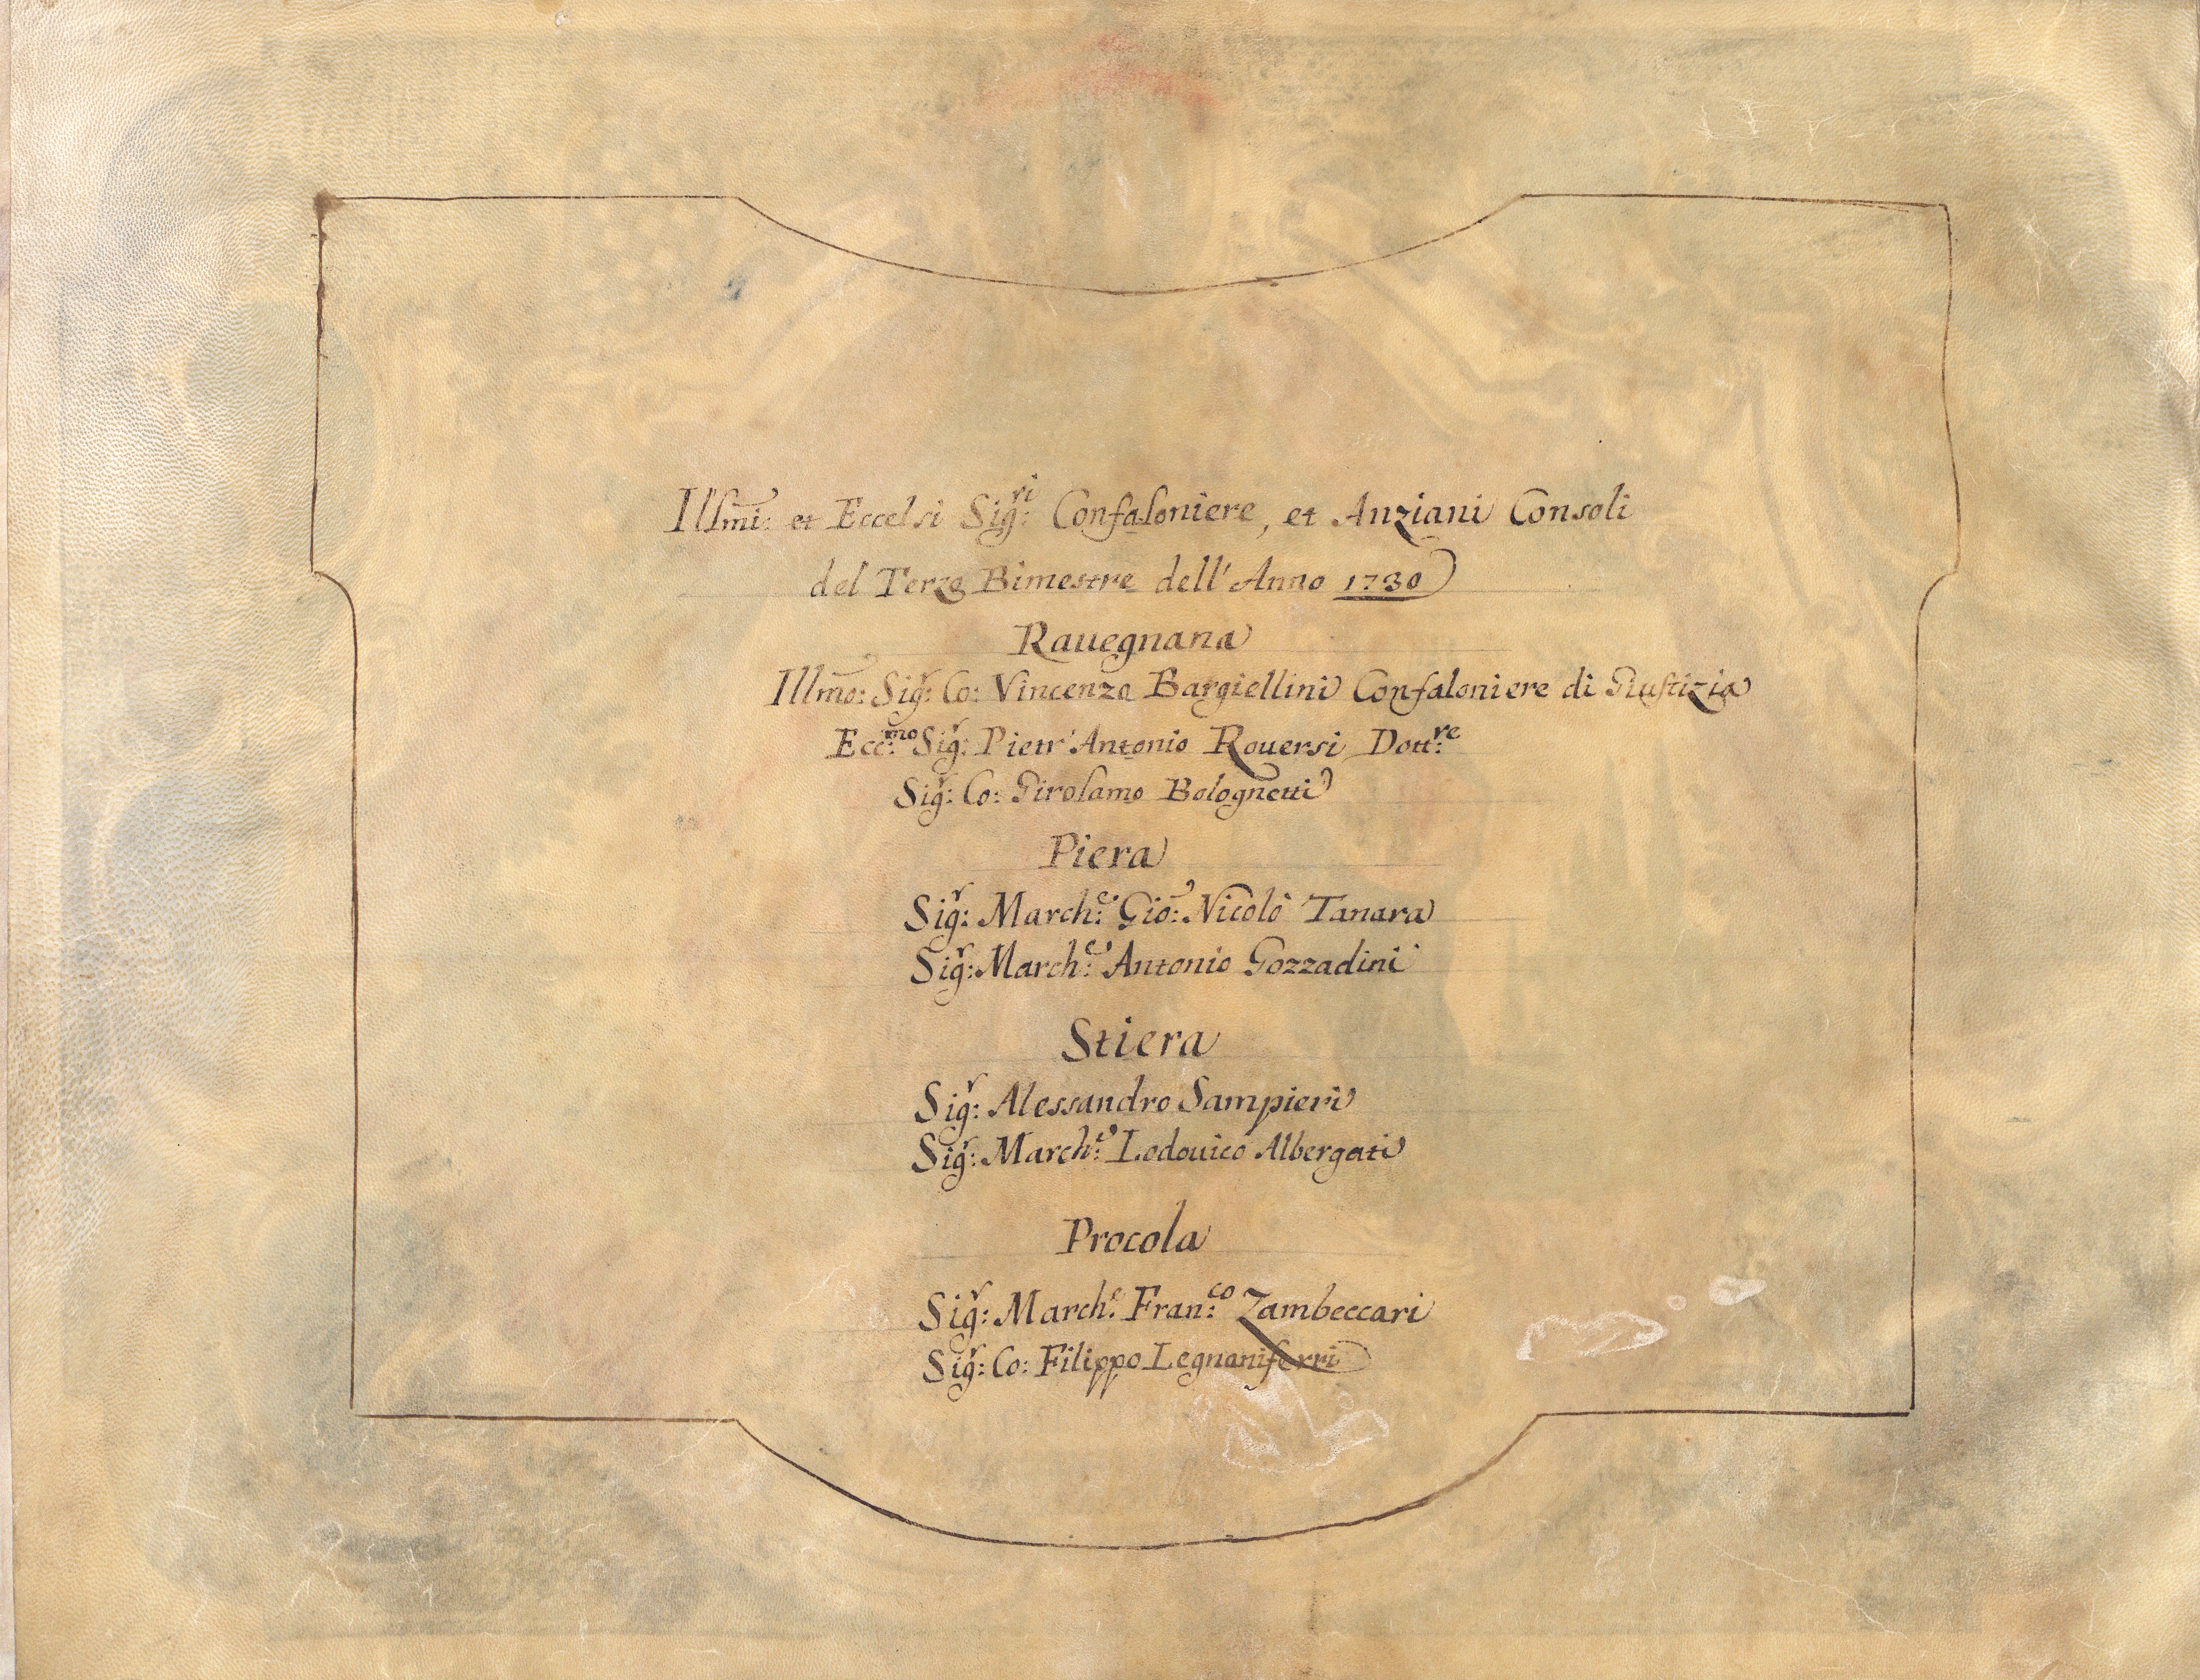 Illmi: et Eccelsi Sig:ri Confaloniere, et Anziani Consoli
del Terzo Bimestre dell'Anno 1730
Rauegnana
Illmo: Sig:r Co: Vincenzo Bargiellini Confaloniere di Giustizia
Ecc:mo Sig:r Pietr'Antonio Rouersi Dott:re
Sig:r Co: Girolamo Bolognetti
Piera
Sig:r March:e Gio: Nicolò Tanara
Sig:r March:e Antonio Gozzadini
Stiera
Sig:r Alessandro Sampieri
Sig:r March:e Lodouico Albergati
Procola
Sig:r March:e Fran:co Zambeccari
Sig:r Co: Filippo Legnaniferri